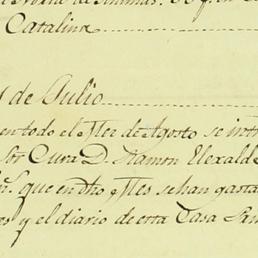 Catalina
de Julio
en todo el Mes de Agosto se
Sor Cura D. Ramon Elexalde
que en dho Mes se han gasta
y el diario de esta Casa